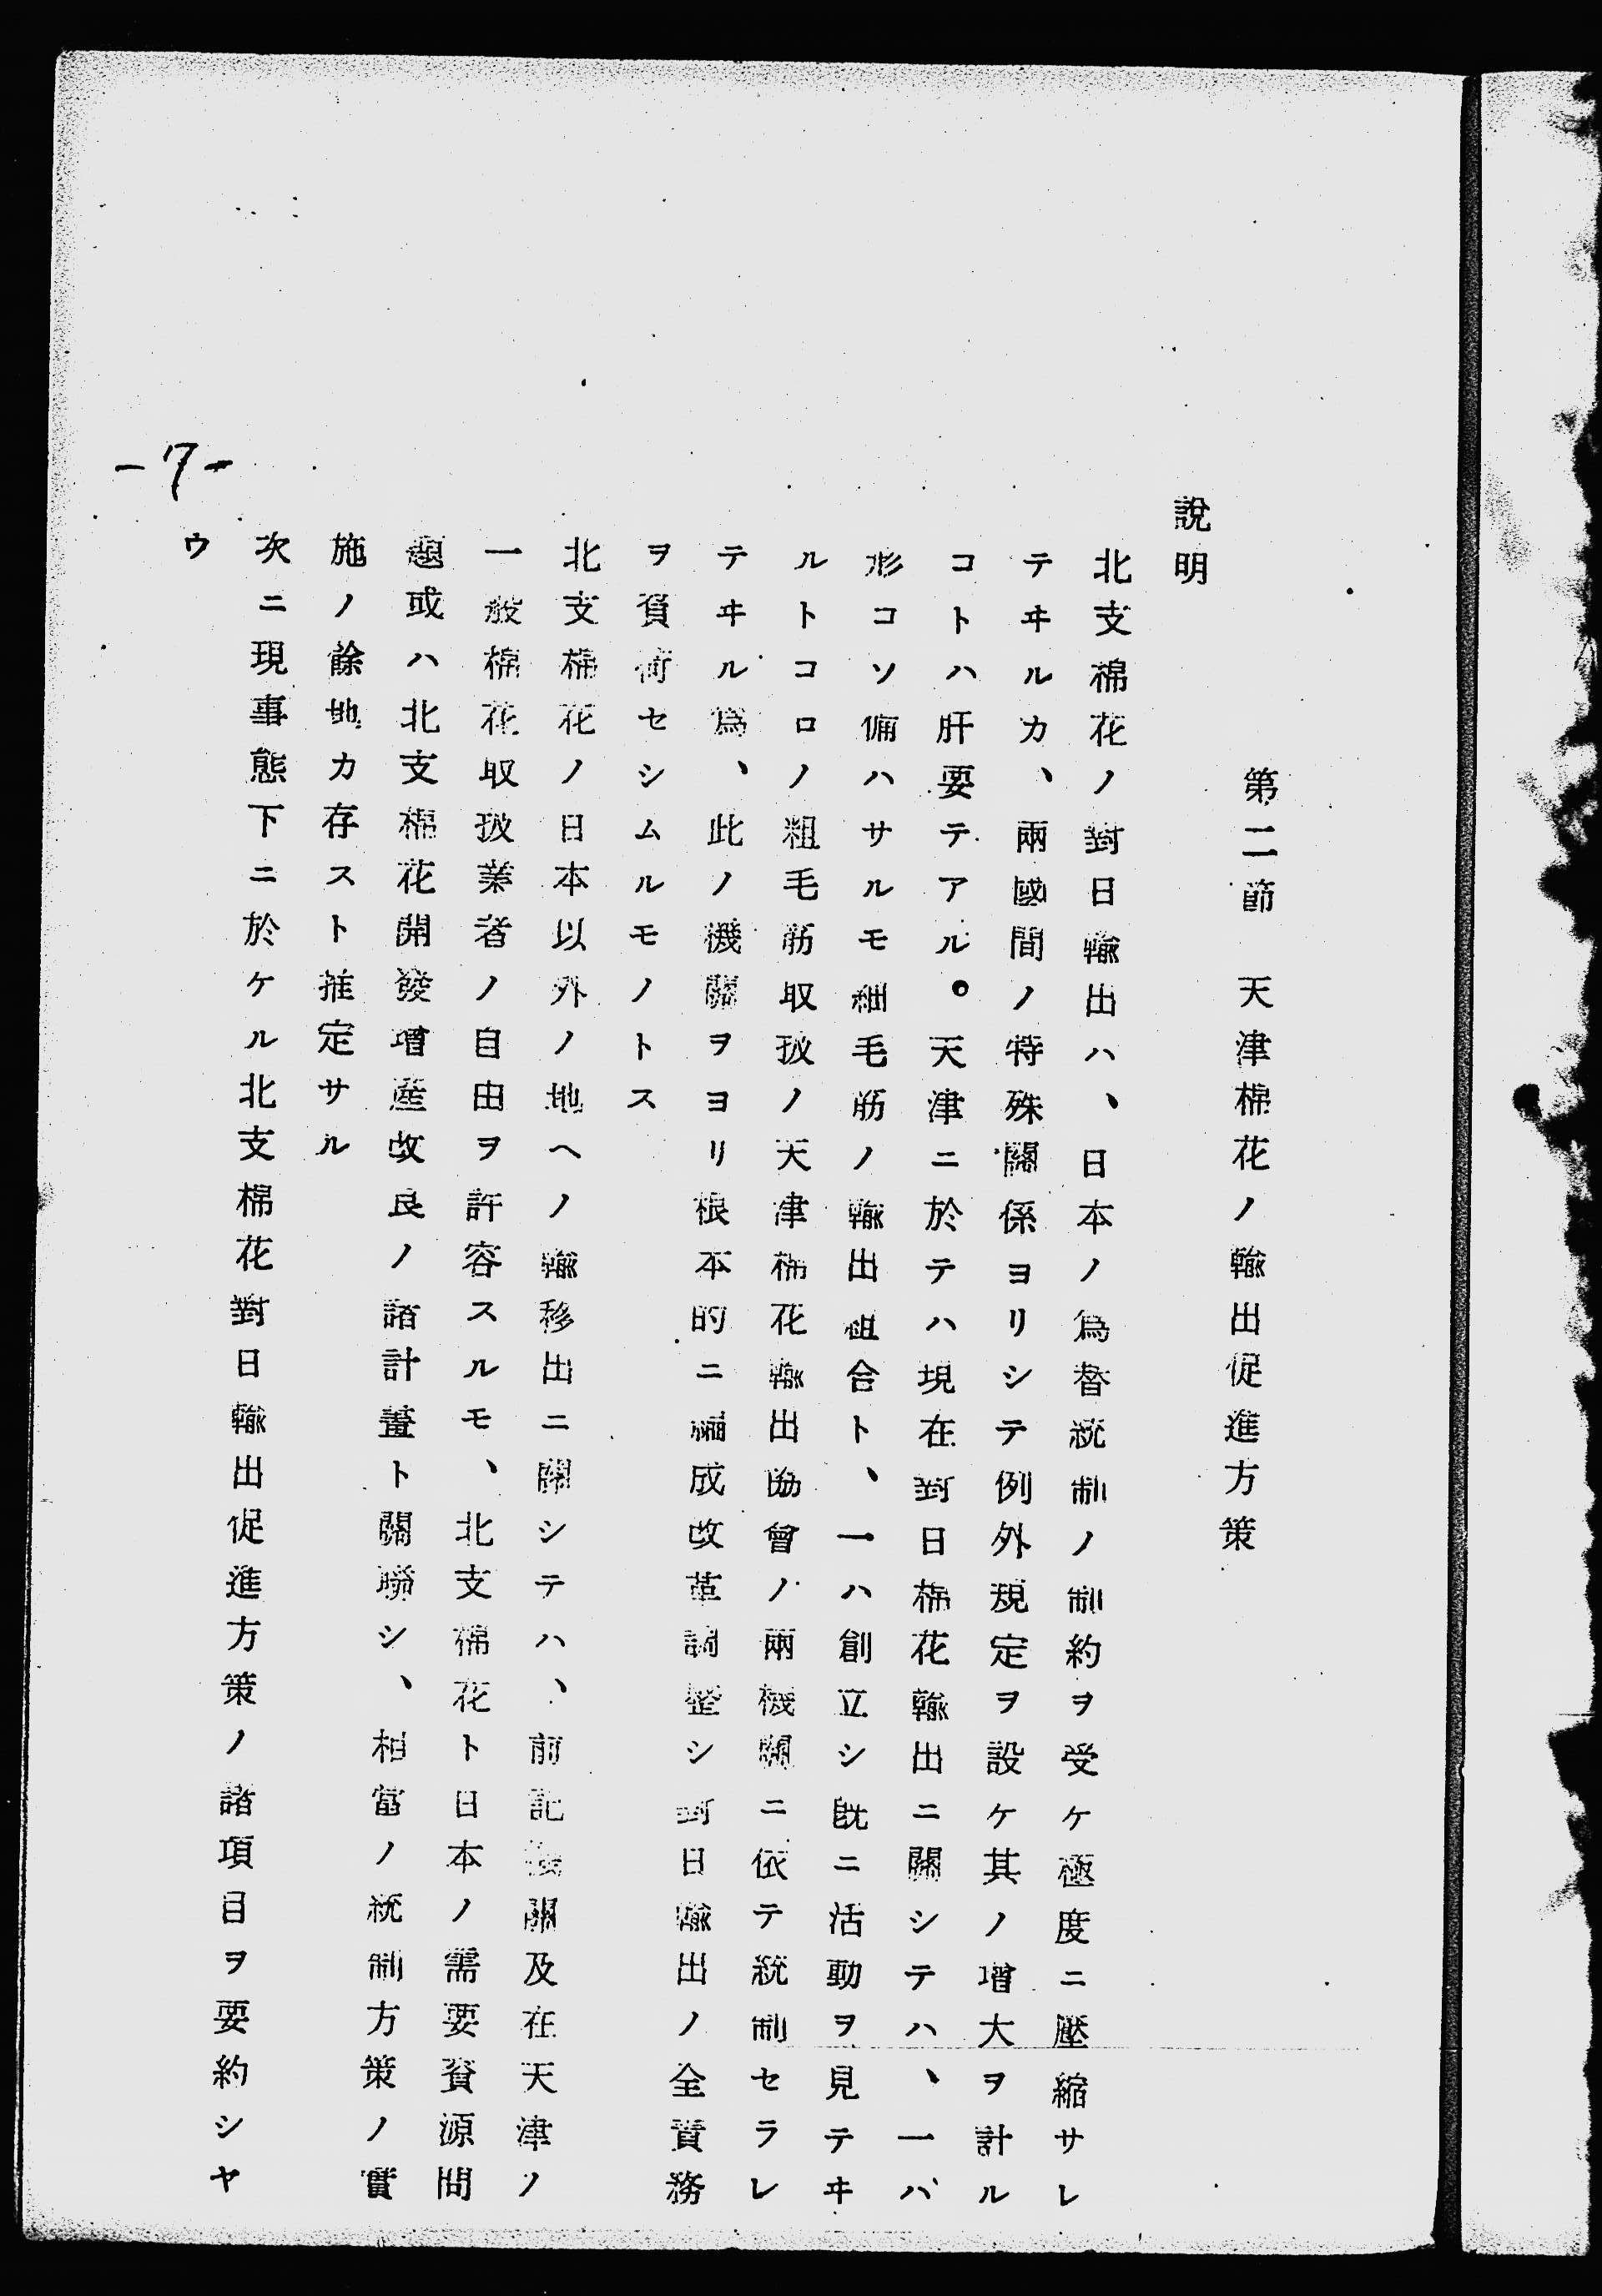 第二節　天津棉花ノ輸出促進方策
說明
北支棉花ノ對日輸出ハ、日本ノ爲替統制ノ制約ヲ受ケ極度ニ壓縮サレ
テヰルカ、兩國間ノ特殊關係ヨリシテ例外規定ヲ設ケ其ノ增大ヲ計ル
コトハ肝要テアル。天津ニ於テハ現在對日棉花輸出ニ關シテハ、一ハ
形コソ備ハサルモ細毛筋ノ輸出組合ト、一ハ創立シ既ニ活動ヲ見テヰ
ルトコロノ粗毛筋取扱ノ天津棉花輸出協會ノ兩機關ニ依テ統制セラレ
テヰル爲、此ノ機關ヲヨリ根本的ニ編成改革調整シ對日輸出ノ全責務
ヲ負荷セシムルモノトス
北支棉花ノ日本以外ノ地ヘノ輸移出ニ關シテハ、前記機關及在天津ノ
一般棉花取扱業者ノ自由ヲ許容スルモ、北支棉花ト日本ノ需要資源問
題或ハ北支棉花開發增產改良ノ諸計畫ト關聯シ、相當ノ統制方策ノ實
施ノ餘地カ存スト推定サル
次ニ現事態下ニ於ケル北支棉花對日輸出促進方策ノ諸項目ヲ要約シヤ
ウ
-7-